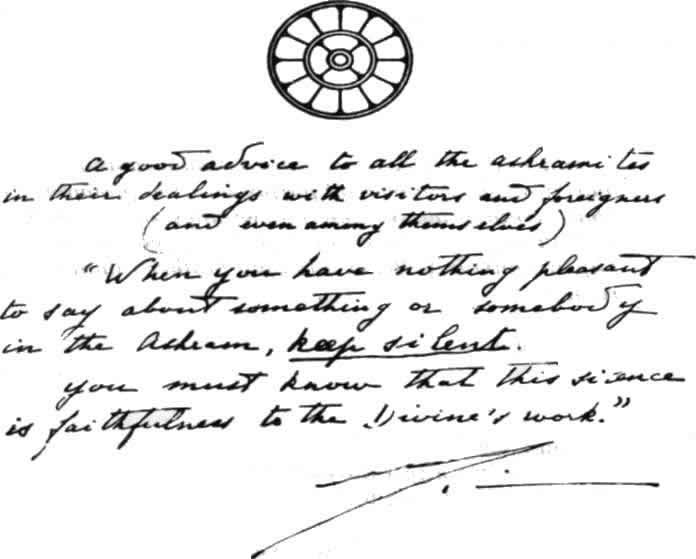 A good advice to all the ashramites
in their dealings with visitors and foreigners
(and even among themselves)
"When you have nothing pleasant
to say about something or somebody
in the Ashram, keep silent.
you must know that this silence
is faithfulness to the Divine's work."